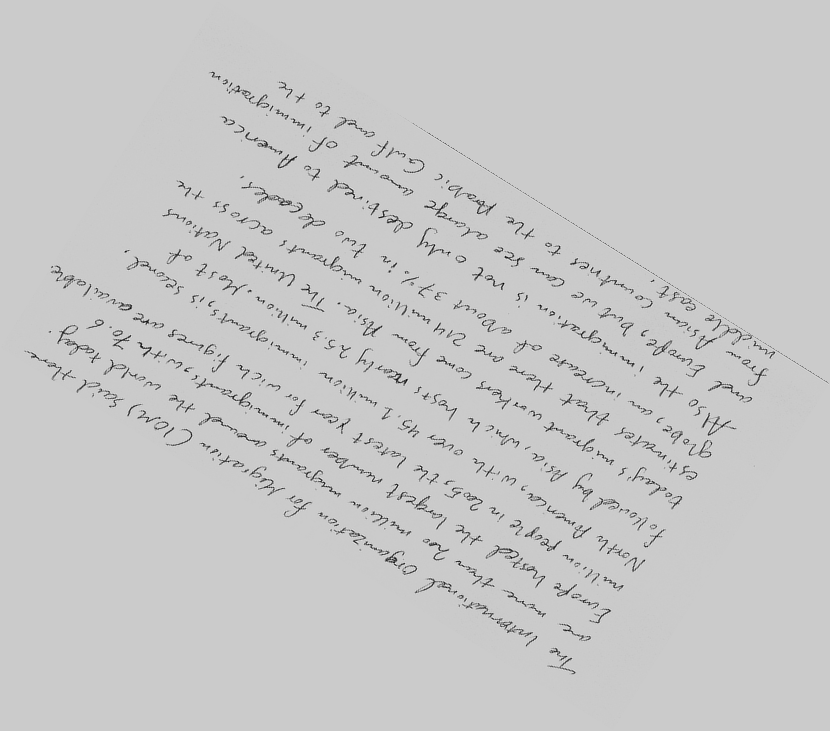 The International Organization for Migration (IOM) said there
are more than 200 million migrants around the world today.
Europe hosted the largest number of immigrants, with 70.6
million people in 2005, the latest year for wich figures are available.
North America, with over 45.1 million immigrants, is second,
followed by Asia, which hosts nearly 25.3 million. Most of
today's migrant workers come from Asia. The United Nations
estimates that there are 214 million migrants across the
globe, an increase of about 37% in two decades.
Also the immigration is not only destined to America
and Europe, but we can see alarge amount of immigration
from Asian Countries to the Arabic Gulf and to the
middle east.